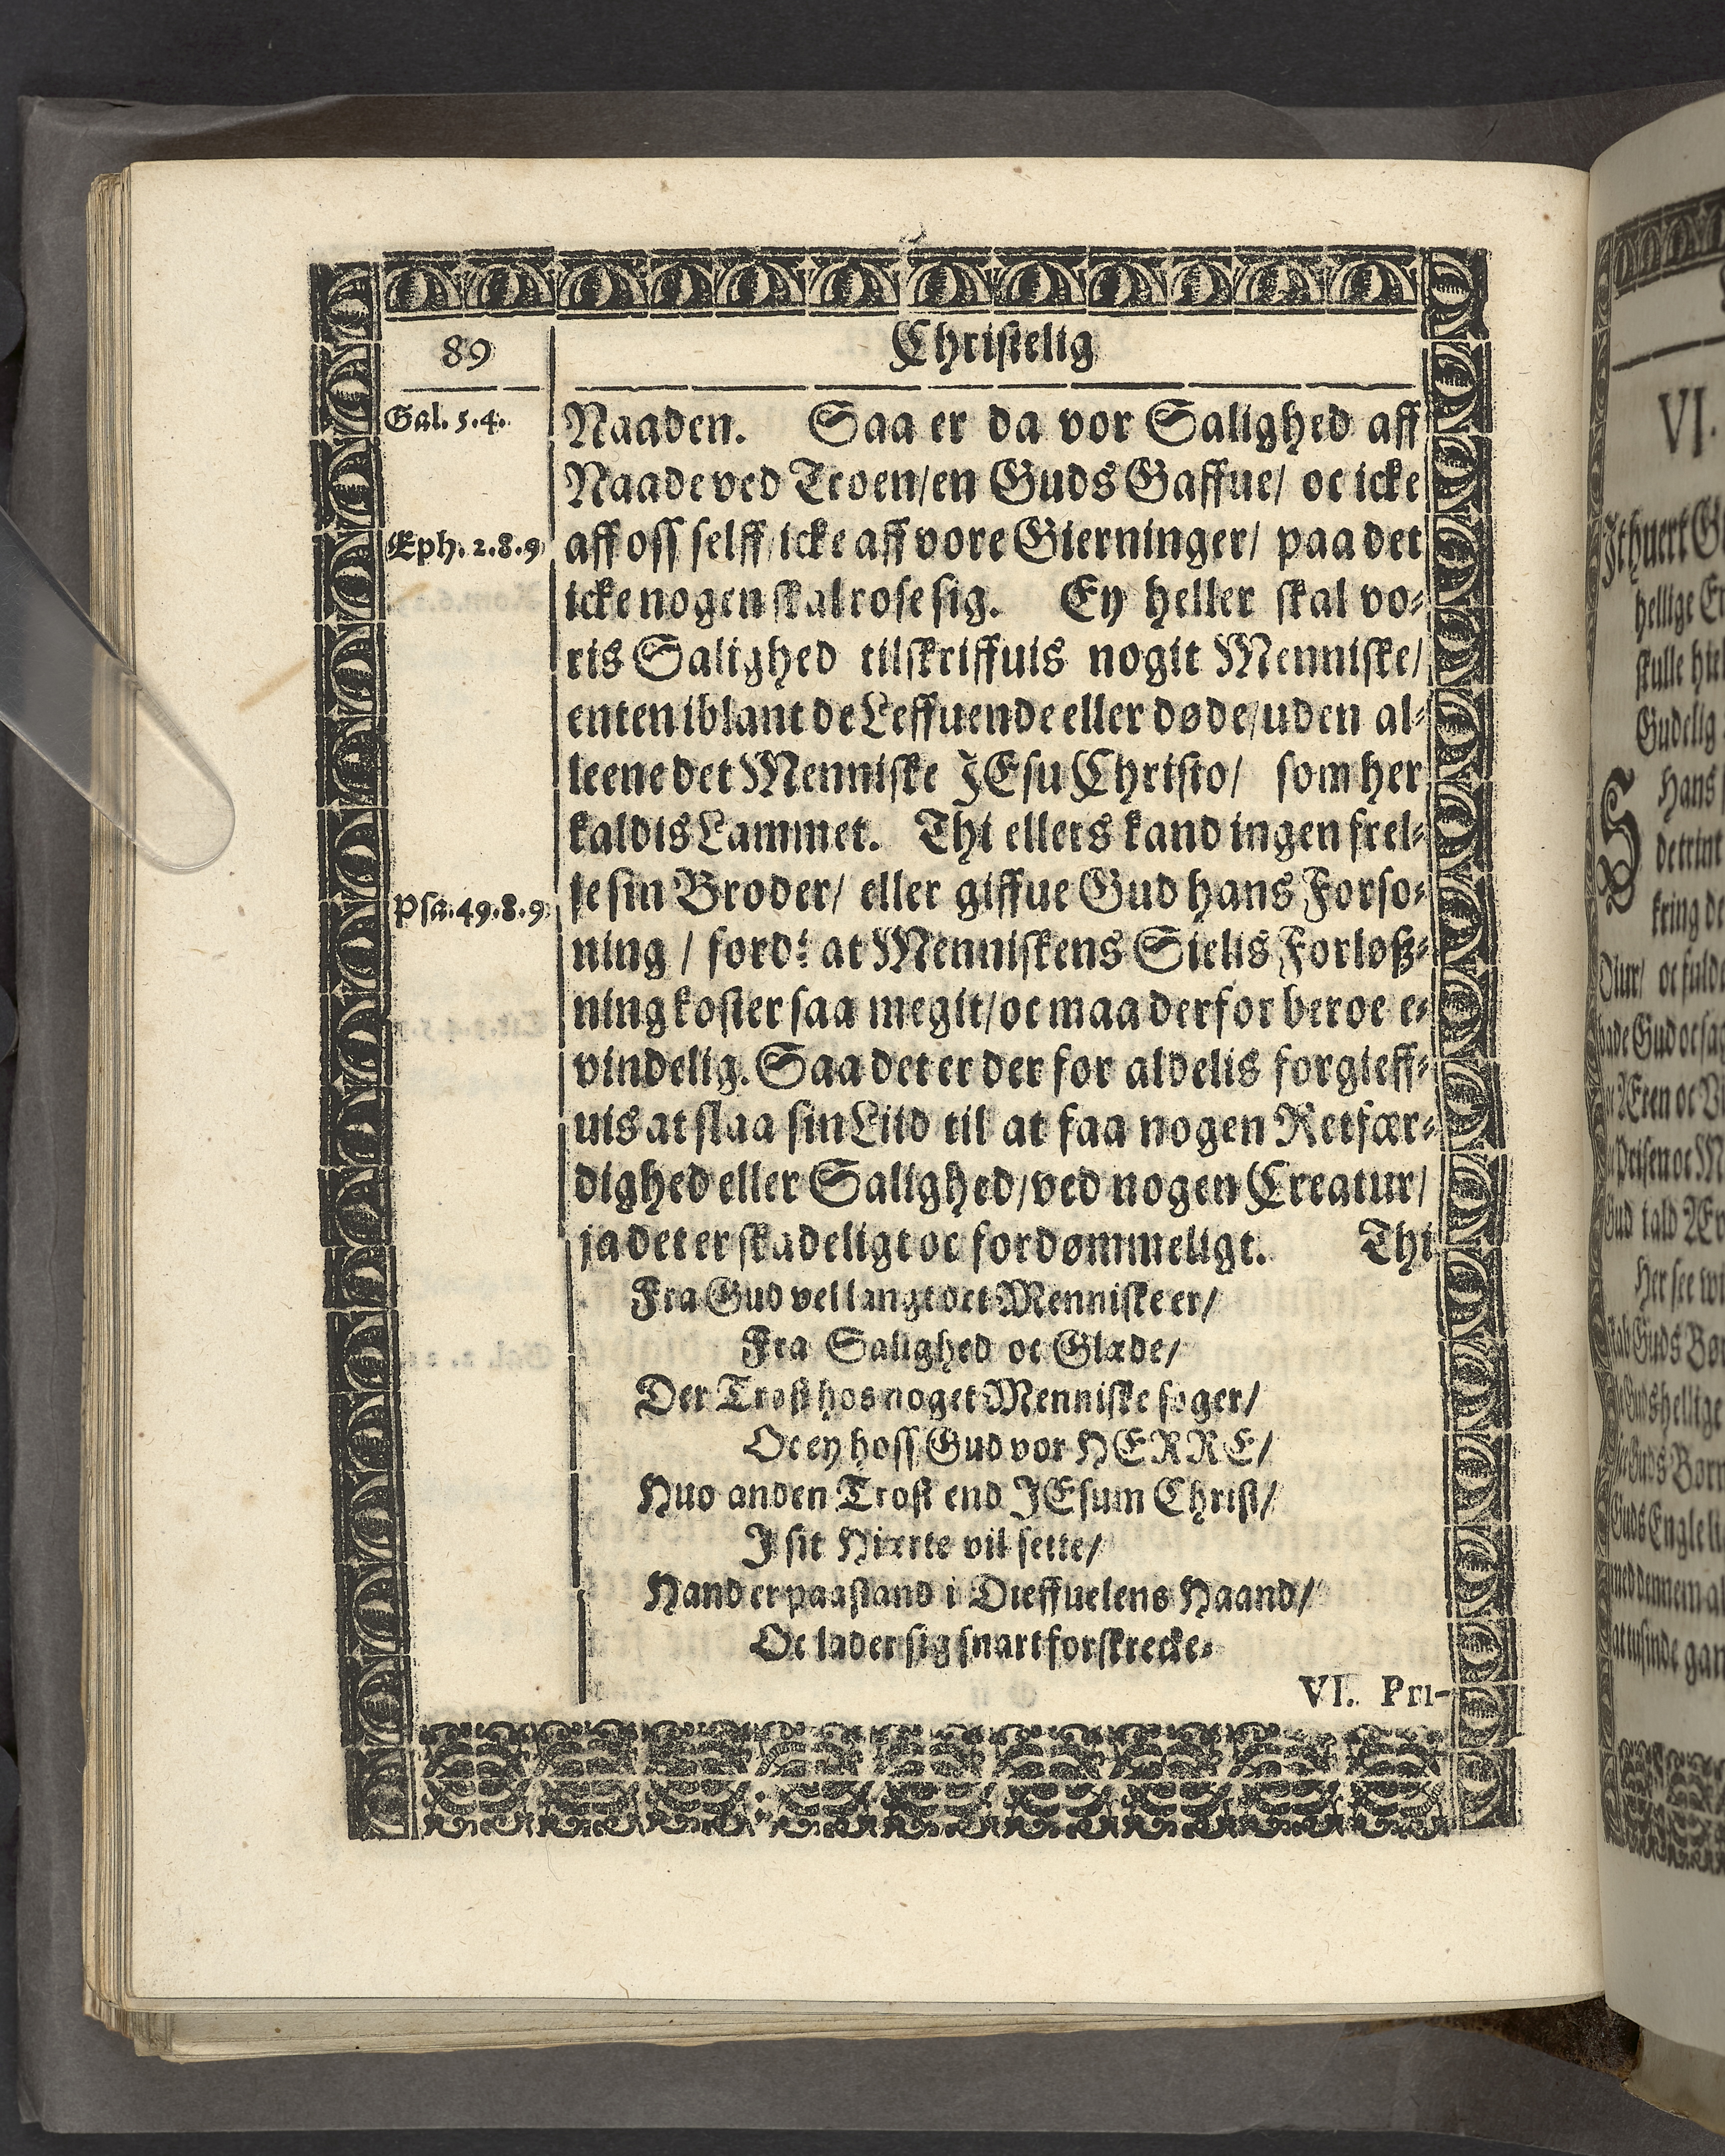 89
Christelig
Gal. 5.4.
Naaden. Saa er da vor Salighed aff
Naade ved Troen/ en Guds Gaffue/ oc icke
Eph. 2.8.9
aff oss selff/ icke aff vore Gierninger/ paa det
icke nogen skal rose sig. Ey heller skal vo-
ris Salighed tilskriffuis nogit Menniske/
enten iblant de Leffuende eller døde/ uden al-
leene det Menniske JEsu Christo/ som her
kaldis Lammet. Thi ellers kand ingen frel-
Psa. 49.8.9
se sin Broder/ eller giffue Gud hans Forso-
ning / fordi at Menniskens Sielis Forløß-
ning koster saa megit/ oc maa derfor beroe e-
vindelig. Saa det er der for aldelis forgieff-
uis at slaa sin Liid til at faa nogen Retfær-
dighed eller Salighed/ ved nogen Creatur/
ja det er skadeligt oc fordømmeligt. Thi
Fra Gud vel langt det Menniske er/
Fra Salighed oc Glæde/
Der Trøst hos noget Menniske søger/
Oc ey hoss Gud vor HERRE/
Huo anden Trøst end JEsum Christ/
J sit Hierte vil sette/
Hand er paastand i Dieffuelens Haand/
Oc lader sig snart forskrecke.
VI. Pri-
VI.
hellige
skulle
Gudelig
Hans
kring